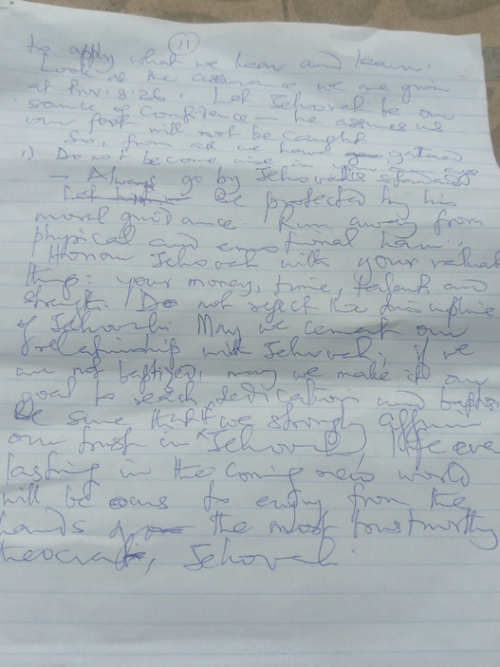 11
to apply what we hear and learn.
Look at the assurance we are given
at Prov. 3:26. Let Jehovah be our
source of confidence – he assures us
our foot will not be caught.
So, from all we have gained
1) Do not become wise in
– Always go by Jehovah's standards
Be protected by his
moral guidance. Run away from
physical and emotional harm.
Honour Jehovah with your valuable
things: your money, time, talents and
strength. Do not reject the discipline
of Jehovah. May we cement our
relationship with Jehovah; if we
are not baptised, may we make it our
goal to reach dedication and baptism
Be sure that if we strongly affirm
our trust in Jehovah, life ever
lasting in the coming new world
will be ours to enjoy from the
hands of the most trustworthy
theocrat, Jehovah.